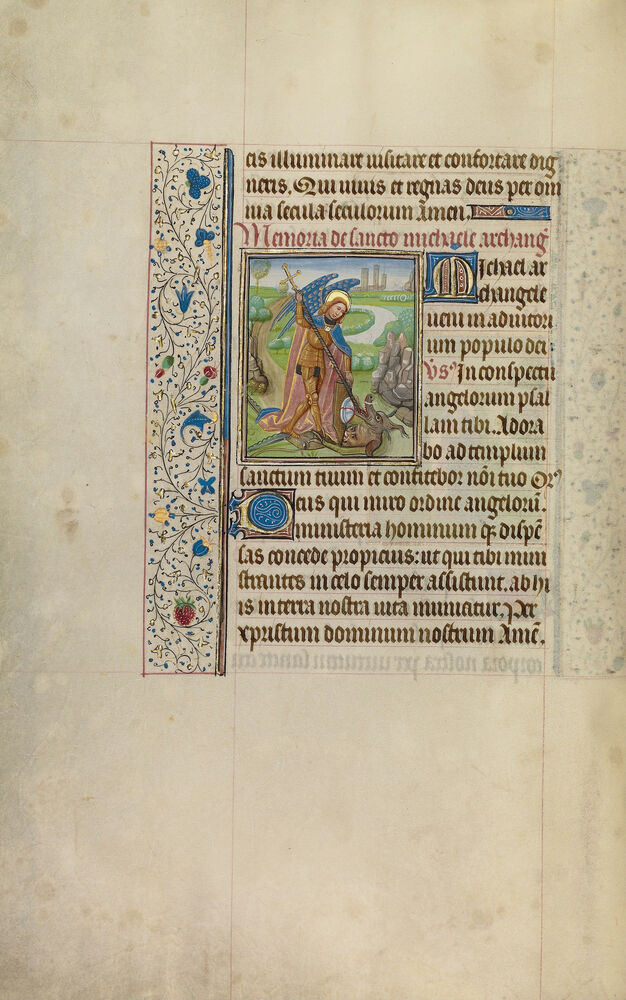 cis illuminare uisitare et confortare dig
neris. Qui uiuis et regnas deus per om
nia secula seculorum Amen.
Memoria de sancto michaele archang̃
Michael ar
changele
ueni in adiutori
um populo dei.
Vs᷒ In conspectu
angelorum psal
lam tibi. Adora
bo ad templum
sanctum tuum et confitebor nõi tuo Or᷒
Deus qui miro ordine angelorũ.
ministeria hominum q̃ dispẽ
sas concede propicius: ut qui tibi mini
strantes in celo semper assistunt. ab hi
is in terra nostra uita muniatur. Per
xpristum dominum nostrum Amẽ.